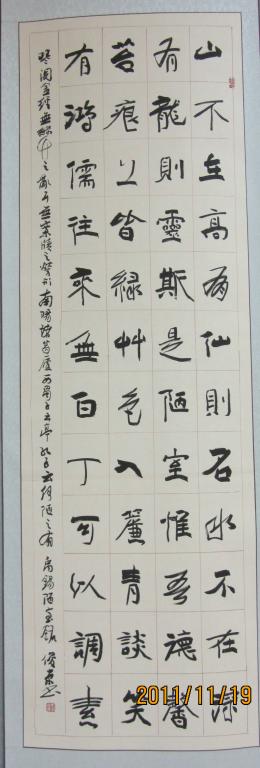 山不在高有仙則名水不在深
有龍則靈斯是陋室惟吾德馨
苔痕上皆綠艸色入簾青談笑
有鴻儒往來無白丁可以調素
琴閱金經無絲竹之亂耳無案牘之勞形南陽諸葛廬西蜀子云亭孔子云何陋之有 禹錫陋室銘
2011/11/19